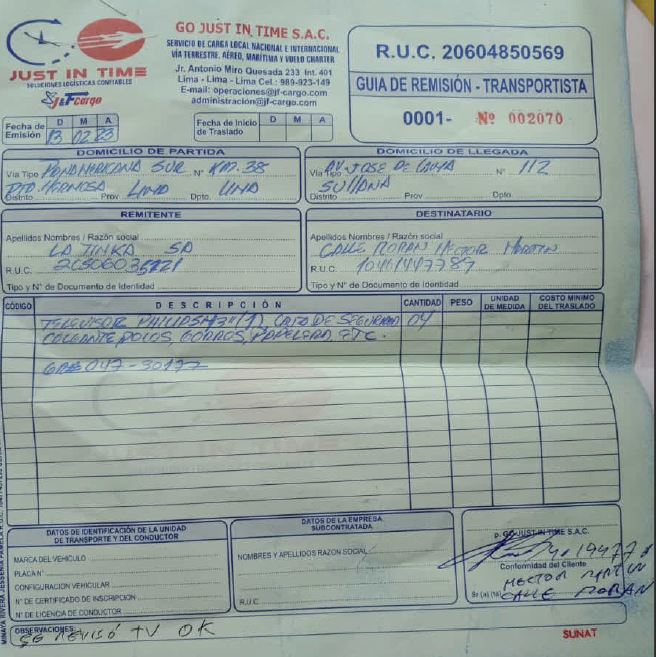 JUST IN TIME
SOLUCIONES LOGÍSTICAS CONFIABLES
J&F cargo
GO JUST IN TIME S.A.C.
SERVICIO DE CARGA LOCAL NACIONAL E INTERNACIONAL
VÍA TERRESTRE, AÉREO, MARÍTIMA Y VUELO CHARTER
Jr. Antonio Miro Quesada 233 Int. 401
Lima - Lima - Lima Cel.: 989-923-149
E-mail: operaciones@jf-cargo.com
administración@jf-cargo.com
R.U.C. 20604850569
GUIA DE REMISIÓN - TRANSPORTISTA
0001- Nº 002070
Fecha de Emisión D M A
13 02 23
Fecha de Inicio de Traslado D M A
DOMICILIO DE PARTIDA
Vía Tipo PANAMERICANA SUR Nº KM. 38
PTO. HERMOSA LIMA LIMA
Distrito Prov Dpto.
DOMICILIO DE LLEGADA
Vía Tipo AV JOSE DE LAMA Nº 112
SULLANA
Distrito Prov. Dpto.
REMITENTE
Apellidos Nombres / Razón social
LA TINKA SA
R.U.C.
Tipo y Nº de Documento de Identidad
DESTINATARIO
Apellidos Nombres / Razón social
CALLE MORAN HECTOR MARTIN
R.U.C.
Tipo y Nº de Documento de Identidad
CÓDIGO DESCRIPCIÓN CANTIDAD PESO UNIDAD DE MEDIDA COSTO MINIMO DEL TRASLADO
TELEVISOR PHILIPS (1), CAJA DE SEGURIDAD 04
COLGANTE, POLOS, GORROS, PAPELERA ETC.
047-30177
DATOS DE IDENTIFICACIÓN DE LA UNIDAD DE TRANSPORTE Y DEL CONDUCTOR
MARCA DEL VEHICULO
PLACA Nº
CONFIGURACIÓN VEHICULAR
Nº DE CERTIFICADO DE INSCRIPCION
Nº DE LICENCIA DE CONDUCTOR
DATOS DE LA EMPRESA SUBCONTRATADA
NOMBRES Y APELLIDOS RAZON SOCIAL
R.U.C.
p. GO JUST IN TIME S.A.C.
Conformidad del Cliente
HECTOR MARTIN
Sr (a) (ta) CALLE MORAN
OBSERVACIONES:
SE REVISÓ TV OK
SUNAT